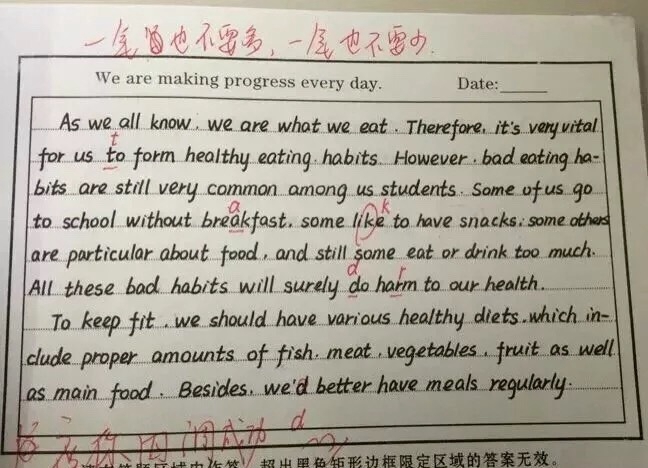 一笔也不要多，一笔也不要少.
We are making progress every day. Date:
As we all know, we are what we eat. Therefore, it's very vital
t
for us to form healthy eating habits. However, bad eating ha-
bits are still very common among us students. Some of us go
a k
to school without breakfast, some like to have snacks, some others
are particular about food, and still some eat or drink too much.
d r
All these bad habits will surely do harm to our health.
To keep fit, we should have various healthy diets, which in-
clude proper amounts of fish, meat, vegetables, fruit as well
as main food. Besides, we'd better have meals regularly.
你 成功 d
超出黑色矩形边框限定区域的答案无效。